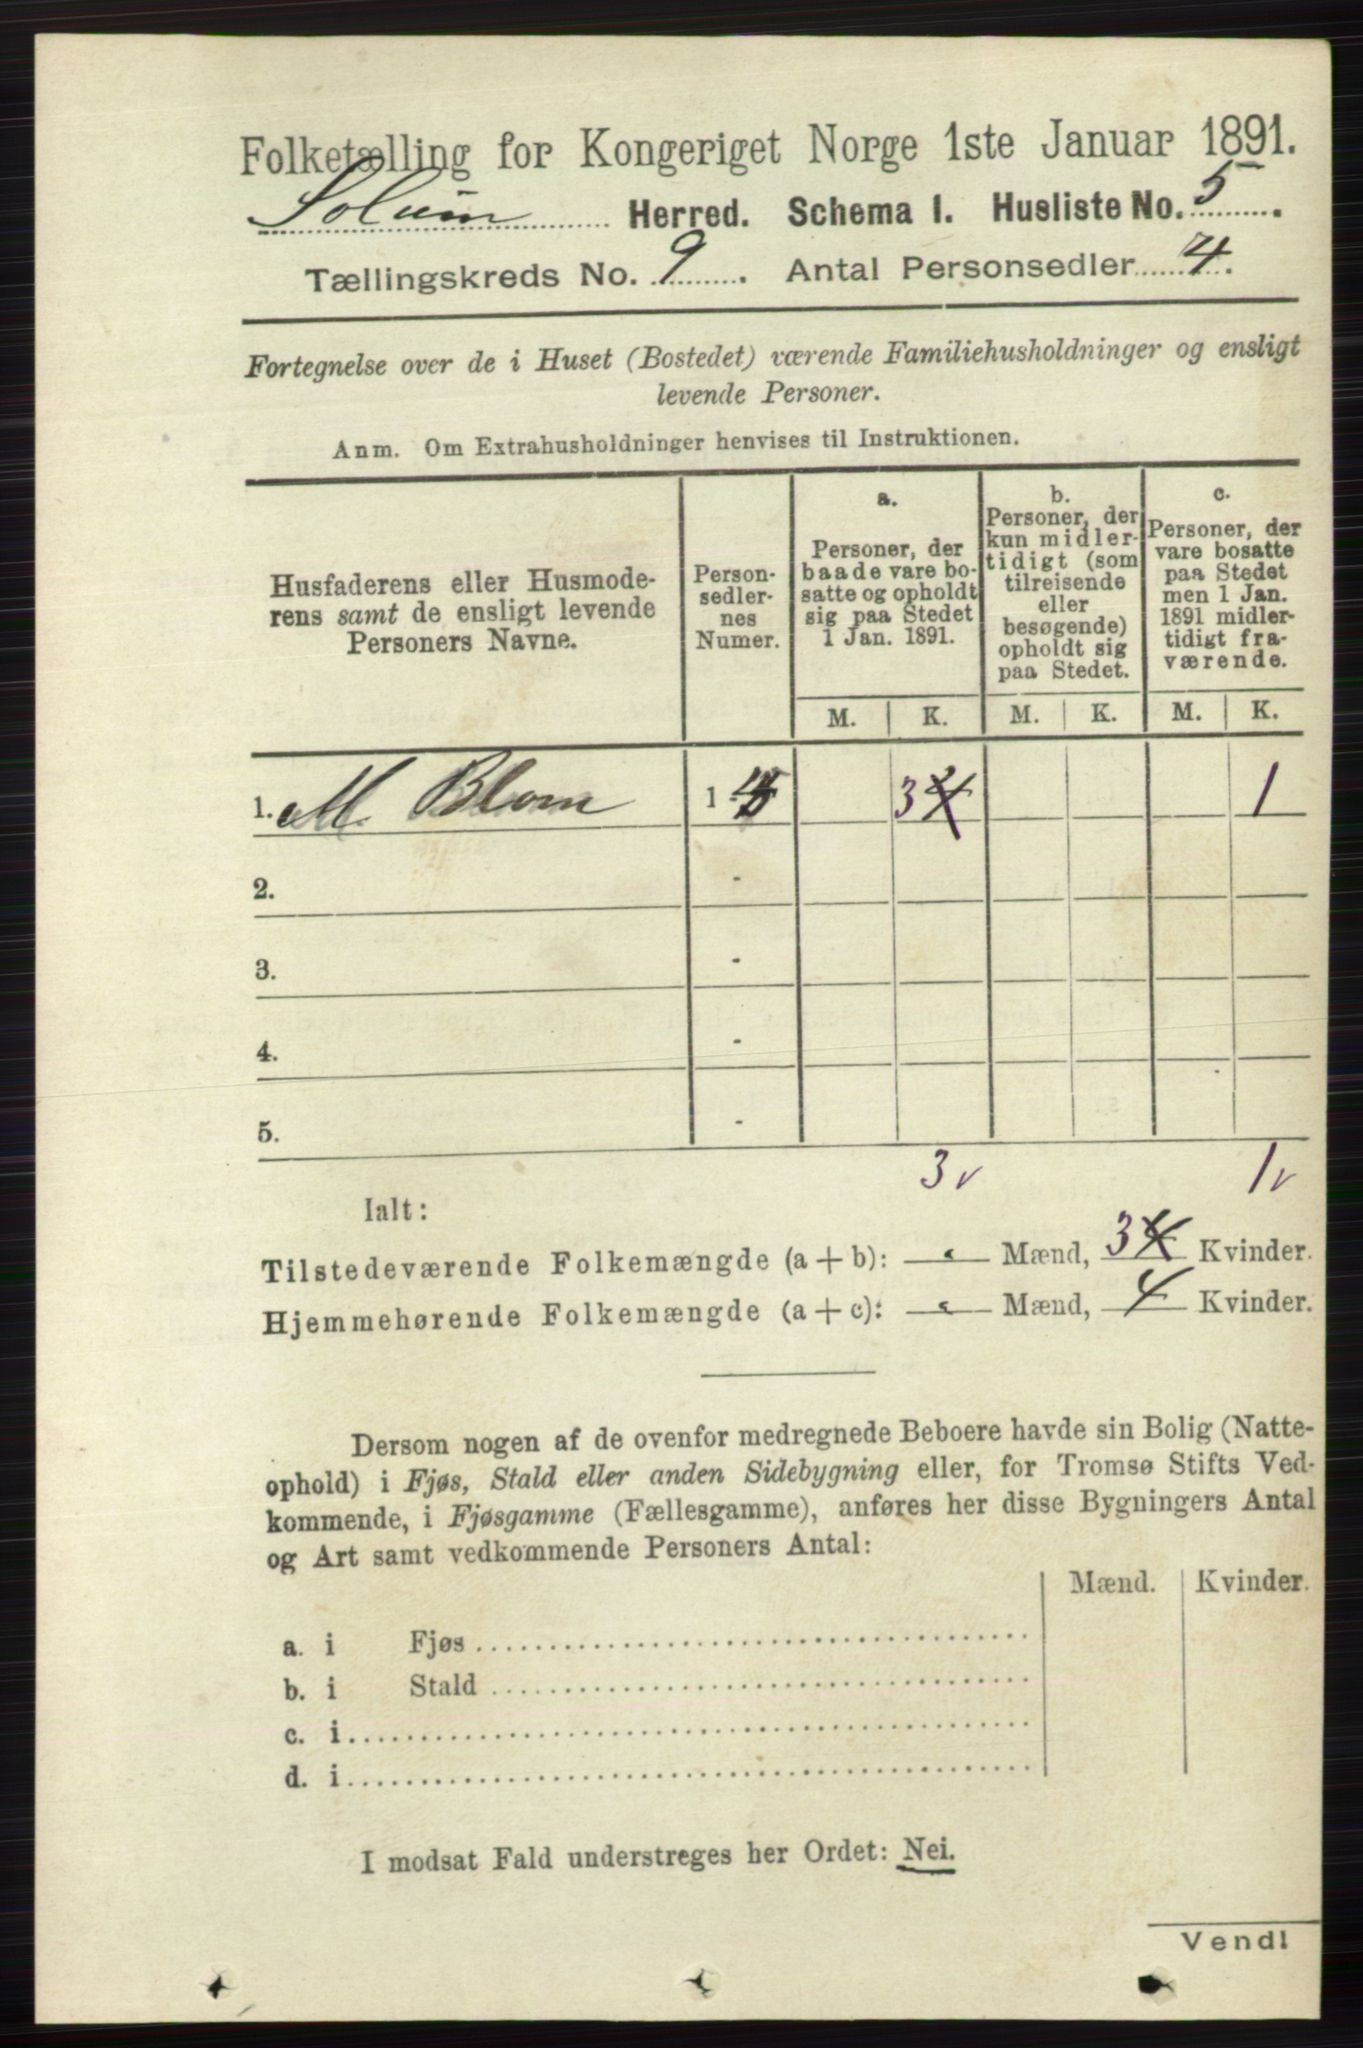 Folketælling for Kongeriget Norge 1ste Januar 1891.
Solum Herred. Schema I. Husliste No. 5.
Tællingskreds No. 9. Antal Personsedler 4.
Fortegnelse over de i Huset (Bostedet) værende Familiehusholdninger og ensligt
levende Personer.
Anm. Om Extrahusholdninger henvises til Instruktionen.
Husfaderens eller Husmode-
rens samt de ensligt levende
Personers Navne.
Person-
sedler-
nes
Numer.
a.
Personer, der
baade vare bo-
satte og opholdt
sig paa Stedet
1 Jan. 1891.
b.
Personer, der
kun midler-
tidigt (som
tilreisende
eller
besøgende)
opholdt sig
paa Stedet.
c.
Personer, der
vare bosatte
paa Stedet
men 1 Jan.
1891 midler-
tidigt fra-
værende.
M. K. M. K. M. K.
1. M. Blom 1 - 4 3 4 1
2. -
3. -
4. -
5. -
3 v 1 v
Ialt:
Tilstedeværende Folkemængde (a + b): Mænd, 3 4 Kvinder.
Hjemmehørende Folkemængde (a + c): Mænd, 4 Kvinder.
Dersom nogen af de ovenfor medregnede Beboere havde sin Bolig (Natte-
ophold) i Fjøs, Stald eller anden Sidebygning eller, for Tromsø Stifts Ved-
kommende, i Fjøsgamme (Fællesgamme), anføres her disse Bygningers Antal
og Art samt vedkommende Personers Antal:
Mænd. Kvinder.
a. i Fjøs
b. i Stald
c. i
d. i
I modsat Fald understreges her Ordet: Nei.
Vendl